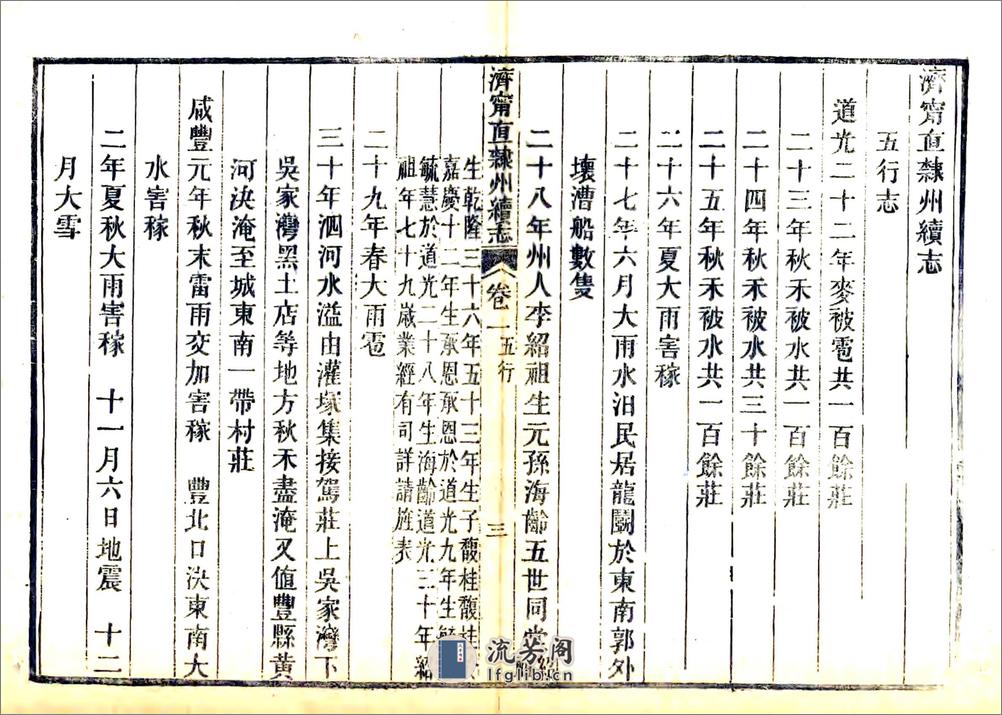 濟甯直隸州續志
五行志
道光二十二年麥被雹共一百餘莊
二十三年秋禾被水共一百餘莊
二十四年秋禾被水共三十餘莊
二十五年秋禾被水共一百餘莊
二十六年夏大雨害稼
二十七年六月大雨水汨民居龍鬭於東南郭外
壞漕船數隻
二十八年州人李紹祖生元孫海齡五世同堂
濟甯直隸州續志 卷一 五行 三
生乾隆三十六年五十三年生子馥桂馥桂
嘉慶十二年生承恩承恩於道光九年生毓
毓慧於道光二十八年生海齡道光三十年紹
祖年七十九歲業經有司詳請旌表
二十九年春大雨雹
三十年泗河水溢由灌塚集接駕莊上吳家灣下
吳家灣黑土店等地方秋禾盡淹又值豐縣黃
河決淹至城東南一帶村莊
咸豐元年秋末雷雨交加害稼 豐北口決東南大
水害稼
二年夏秋大雨害稼 十一月六日地震 十二
月大雪
流芳阁
lfglib.cn